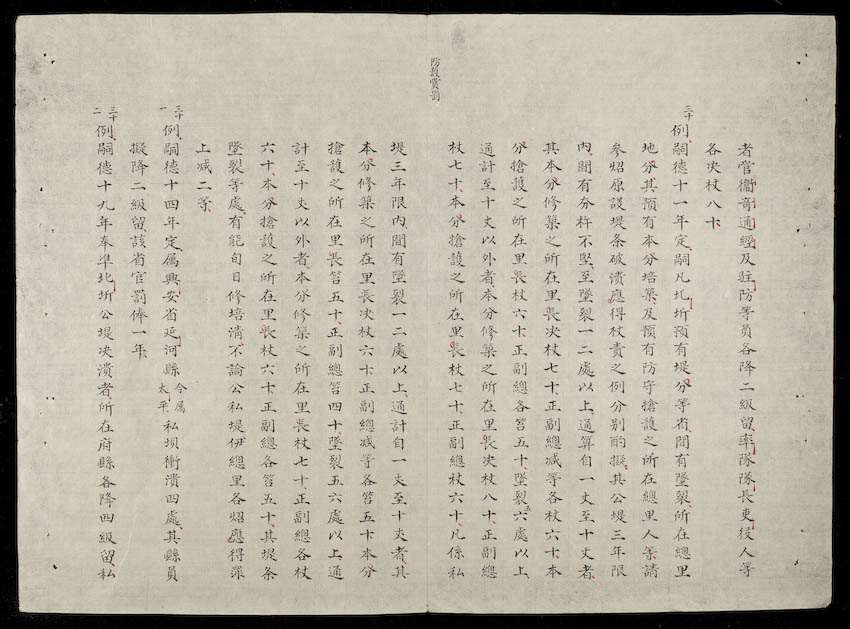 者管衞奇通經及駐防等員各降二級留率隊隊長吏役人等
各决杖八十
三十例嗣德十一年定嗣凡圻預有堤分等省間有墜裂所在總里
地分其預有本分培築及預有防守搶護之所在總里人等請
參炤原議堤条破潰應得杖責之例分別酌擬其公堤三年限
內間有夯杵不堅至墜裂一二處以上通算自一丈至十丈者
其本分修築之所在里長决杖七十正副總减等各杖六十本
分搶護之所在里長杖六十正副總各笞五十墜裂五六處以上
通計至十丈以外者本分修築之所在里長决杖八十正副總
杖七十本分搶護之所在里長杖七十正副總杖六十凡係私
防護賞罰
堤三年限內間有墜裂一二處以上通計自一丈至十丈者其
本分修築之所在里長决杖六十正副總减等各笞五十本分
搶護之所在里長笞五十正副總笞四十墜裂五六處以上通
計至十丈以外者本分修築之所在里長杖七十正副總各杖
六十本分搶護之所在里長杖六十正副總各笞五十其堤条
墜裂等處有能旬日修培清不論公私堤伊總里各炤應得罪
上减二等
三十一例嗣德十四年定属興安省延河縣今属太平私垻衝潰四處其縣員
擬降二級留該省官罰俸一年
三十二例嗣德十九年奉準北圻公堤决潰者所在府縣各降四級留私